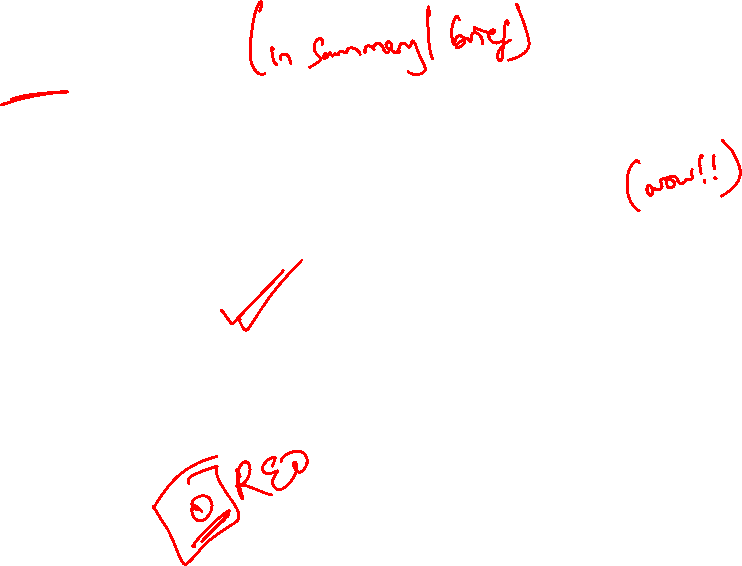 (in summary/brief)
(wow!!)
RED